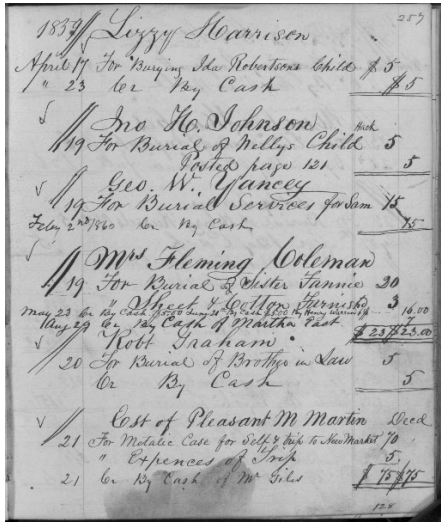 257
1859 Lizzy Harrison
April 17 For Burying Ida Robertsons Child $ 5
" 23 Cr By Cash $ 5
Jno H. Johnson
19 For Burial of Nellys Child 5
Posted page 121 5
Geo. W. Yancey
19 For Burial Services for Sam 15
Feby 2nd 1860 Cr By Cash 15
Mrs Fleming Coleman
19 For Burial of Sister Fannie 20
" Sheet & Cotton Furnishd 3
May 23 Cr By Cash $5.00 By Cash $5.00 By Henry 16.00
Aug 29 Cr By Cash of Martha 7
$ 23 $ 23.00
Robt Graham
20 For Burial of Brother in Law 5
Cr By Cash 5
Cost of Pleasant M Martin Decd
21 For Metalic Case for Self & Trip to New Market 70
" Expences of Trip 5
21 Cr By Cash of Mr Giles $ 75 $ 75